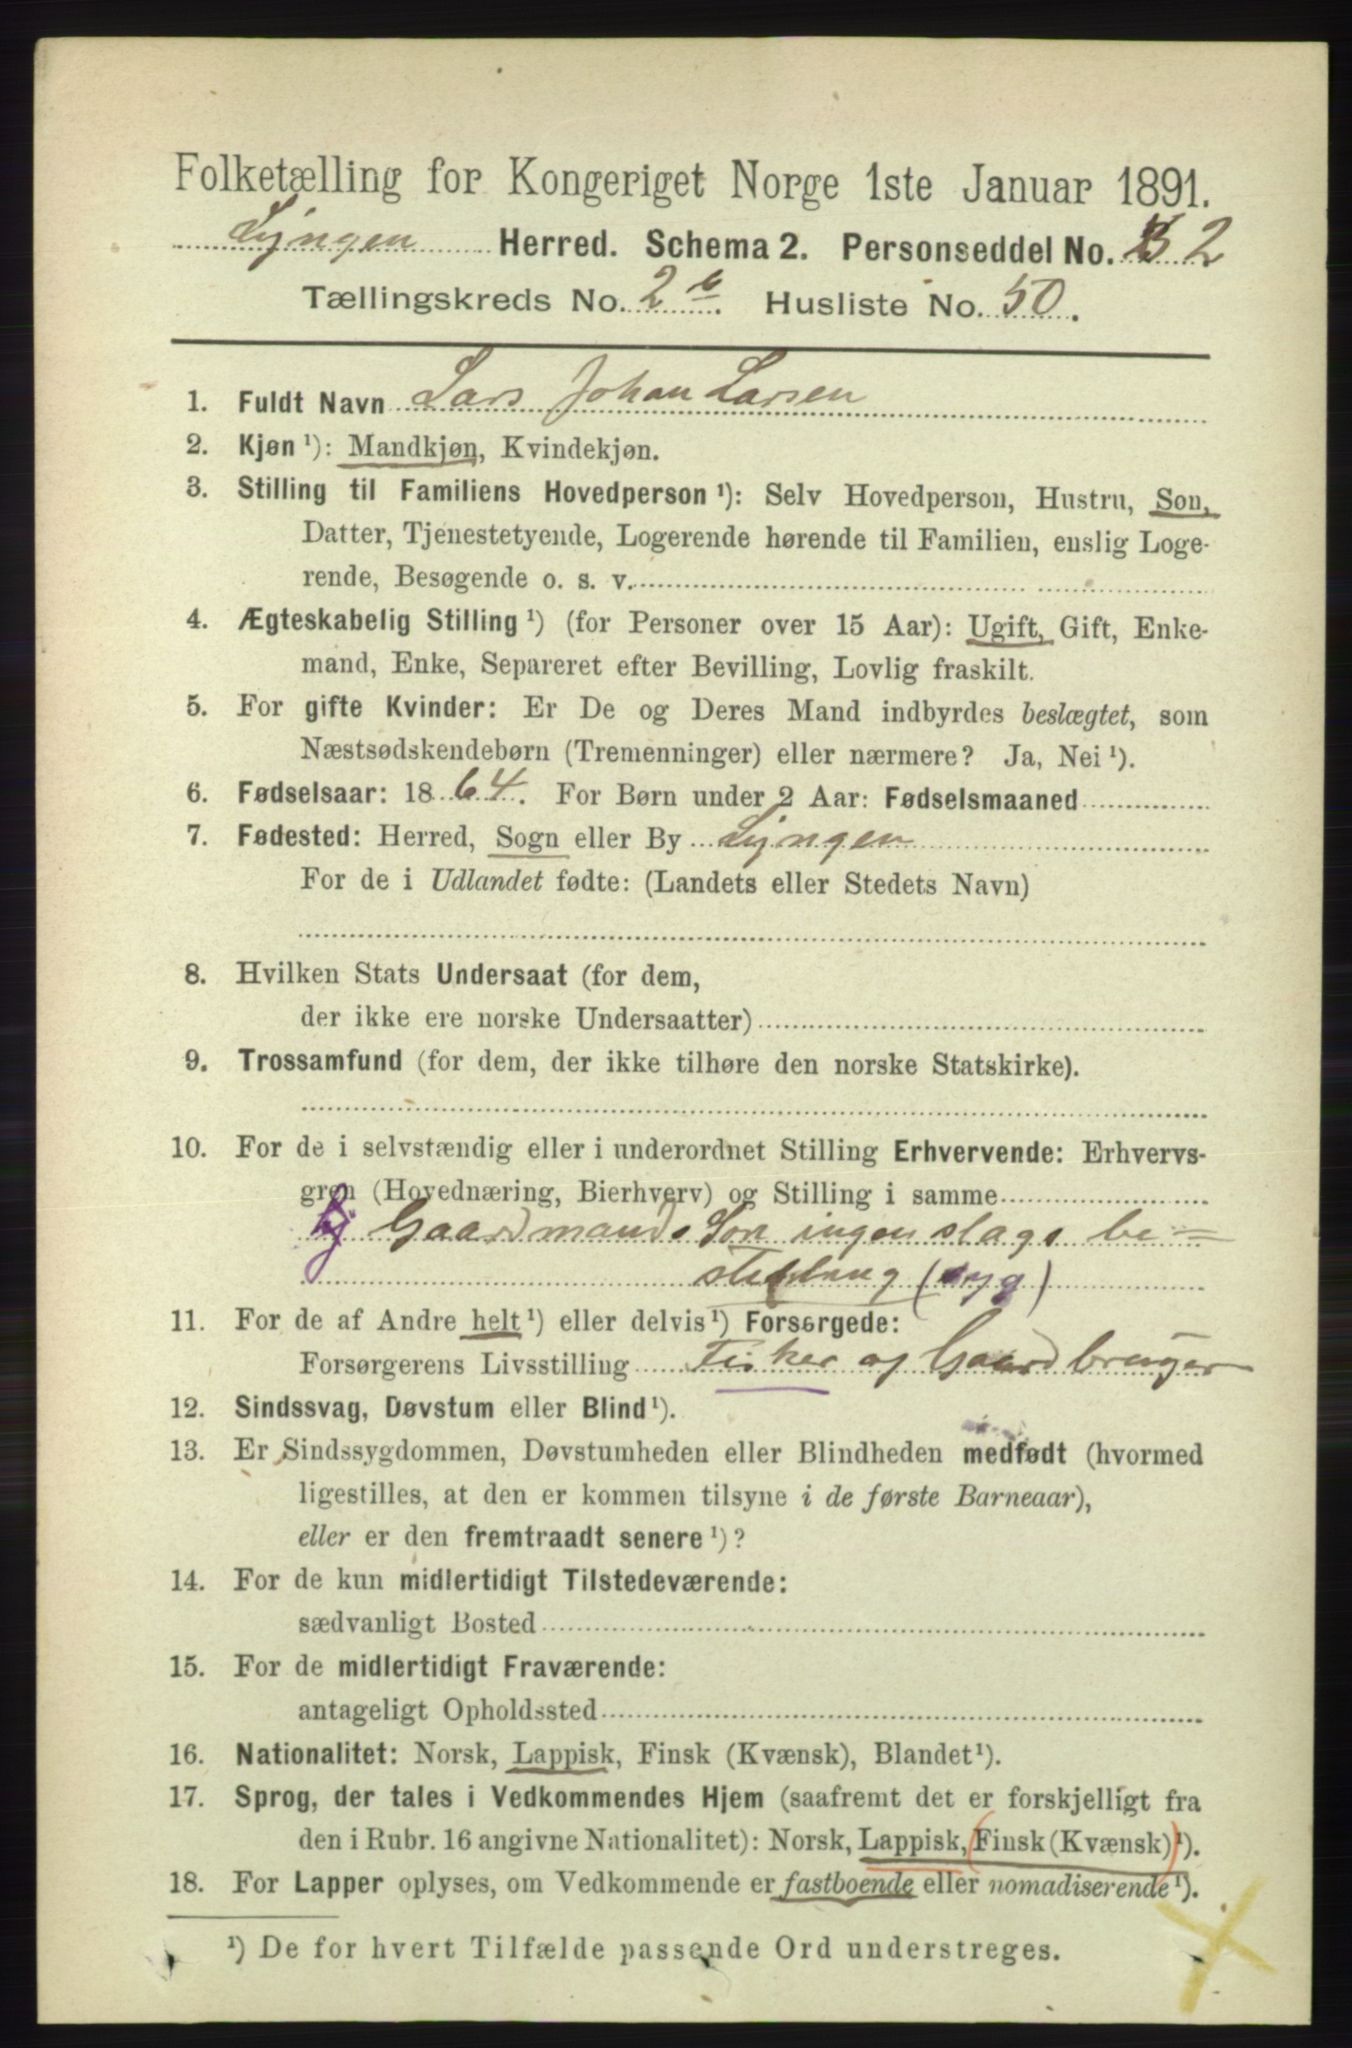 Folketælling for Kongeriget Norge 1ste Januar 1891.
Lyngen Herred. Schema 2. Personseddel No. 2
Tællingskreds No. 2 b. Husliste No. 50.
1. Fuldt Navn Lars Johan Larsen
2. Kjøn ¹): Mandkjøn, Kvindekjøn.
3. Stilling til Familiens Hovedperson ¹): Selv Hovedperson, Hustru, Søn,
Datter, Tjenestetyende, Logerende hørende til Familien, enslig Loge-
rende, Besøgende o. s. v.
4. Ægteskabelig Stilling ¹) (for Personer over 15 Aar): Ugift, Gift, Enke-
mand, Enke, Separeret efter Bevilling, Lovlig fraskilt.
5. For gifte Kvinder: Er De og Deres Mand indbyrdes beslægtet, som
Næstsødskendebørn (Tremenninger) eller nærmere? Ja, Nei ¹).
6. Fødselsaar: 1864. For Børn under 2 Aar: Fødselsmaaned
7. Fødested: Herred, Sogn eller By Lyngen
For de i Udlandet fødte: (Landets eller Stedets Navn)
8. Hvilken Stats Undersaat (for dem,
der ikke ere norske Undersaatter)
9. Trossamfund (for dem, der ikke tilhøre den norske Statskirke).
10. For de i selvstændig eller i underordnet Stilling Erhvervende: Erhvervs-
gren (Hovednæring, Bierhverv) og Stilling i samme
Gaardmands Søn ingen slags be-
stilling (syg)
11. For de af Andre helt ¹) eller delvis ¹) Forsørgede:
Forsørgerens Livsstilling Fisker og Gaardbruger
12. Sindssvag, Døvstum eller Blind ¹).
13. Er Sindssygdommen, Døvstumheden eller Blindheden medfødt (hvormed
ligestilles, at den er kommen tilsyne i de første Barneaar),
eller er den fremtraadt senere ¹)?
14. For de kun midlertidigt Tilstedeværende:
sædvanligt Bosted
15. For de midlertidigt Fraværende:
antageligt Opholdssted
16. Nationalitet: Norsk, Lappisk, Finsk (Kvænsk), Blandet ¹).
17. Sprog, der tales i Vedkommendes Hjem (saafremt det er forskjelligt fra
den i Rubr. 16 angivne Nationalitet): Norsk, Lappisk, Finsk (Kvænsk) ¹).
18. For Lapper oplyses, om Vedkommende er fastboende eller nomadiserende ¹).
¹) De for hvert Tilfælde passende Ord understreges.